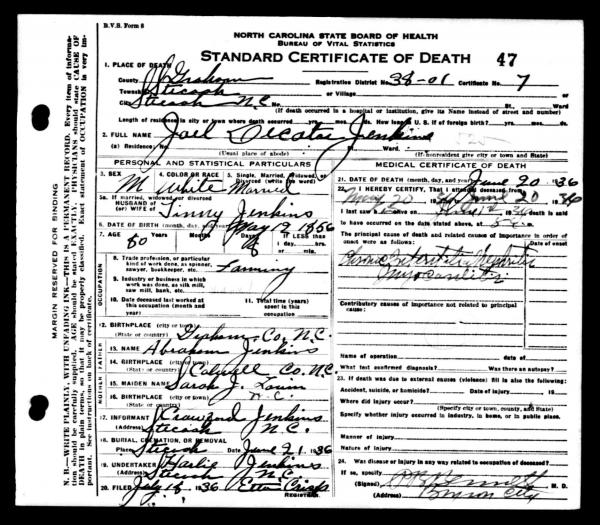 B.V.S. Form 8
NORTH CAROLINA STATE BOARD OF HEALTH
BUREAU OF VITAL STATISTICS
STANDARD CERTIFICATE OF DEATH 47
1. PLACE OF DEATH
County Graham Registration District No. 38-01 Certificate No. 7
Township Stecoah or Village
City Stecoah N.C. No. St. Ward
(If death occurred in a hospital or institution, give its Name instead of street and number)
Length of residence in city or town where death occurred yrs. mos. ds. How long in U. S. if of foreign birth? yrs. mos. ds.
2. FULL NAME Joel Decatur Jenkins
(a) Residence: No. St. Ward.
(Usual place of abode) (If nonresident give city or town and State)
PERSONAL AND STATISTICAL PARTICULARS
3. SEX M 4. COLOR OR RACE White 5. Single, Married, Widowed, or Divorced (write the word) Married
5a. If married, widowed, or divorced
HUSBAND of
(or) WIFE of Tinny Jenkins
6. DATE OF BIRTH (month, day, and year) May 12 1856
7. AGE Years 80 Months Days 8 If LESS than 1 day, hrs. or min.
OCCUPATION
8. Trade, profession, or particular kind of work done, as spinner, sawyer, bookkeeper, etc. Farming
9. Industry or business in which work was done, as silk mill, saw mill, bank, etc.
10. Date deceased last worked at this occupation (month and year)
11. Total time (years) spent in this occupation
12. BIRTHPLACE (city or town)
(State or country) Co. N.C.
FATHER
13. NAME Abraham Jenkins
14. BIRTHPLACE (city or town)
(State or country) Co. N.C.
MOTHER
15. MAIDEN NAME Sarah J.
16. BIRTHPLACE (city or town)
(State or country) N.C.
17. INFORMANT Crawford Jenkins
(Address) Stecoah N.C.
18. BURIAL, CREMATION, OR REMOVAL
Place Stecoah Date June 21 1936
19. UNDERTAKER Harlie Jenkins
(Address) Stecoah N.C.
20. FILED July 18 1936 Etta Crisp
REGISTRAR.
MEDICAL CERTIFICATE OF DEATH
21. DATE OF DEATH (month, day, and year) June 20 1936
22. I HEREBY CERTIFY, That I attended deceased from
May 20 1936 to June 20 1936
I last saw h alive on death is said
to have occurred on the date stated above, at
The principal cause of death and related causes of importance in order of onset were as follows: Date of onset
Chronic Interstitial Nephritis
Myocarditis
Contributory causes of importance not related to principal cause:
Name of operation date of
What test confirmed diagnosis? Was there an autopsy?
23. If death was due to external causes (violence) fill in also the following:
Accident, suicide, or homicide? Date of injury 19
Where did injury occur?
(Specify city or town, county, and State)
Specify whether injury occurred in industry, in home, or in public place.
Manner of injury
Nature of injury
24. Was disease or injury in any way related to occupation of deceased?
If so, specify
(Signed) Bennett M. D.
(Address) Bryson City
MARGIN RESERVED FOR BINDING
N. B.—WRITE PLAINLY, WITH UNFADING INK—THIS IS A PERMANENT RECORD. Every item of information should be carefully supplied. AGE should be stated EXACTLY. PHYSICIANS should state CAUSE OF DEATH in plain terms, so that it may be properly classified. Exact statement of OCCUPATION is very important. See instructions on back of certificate.